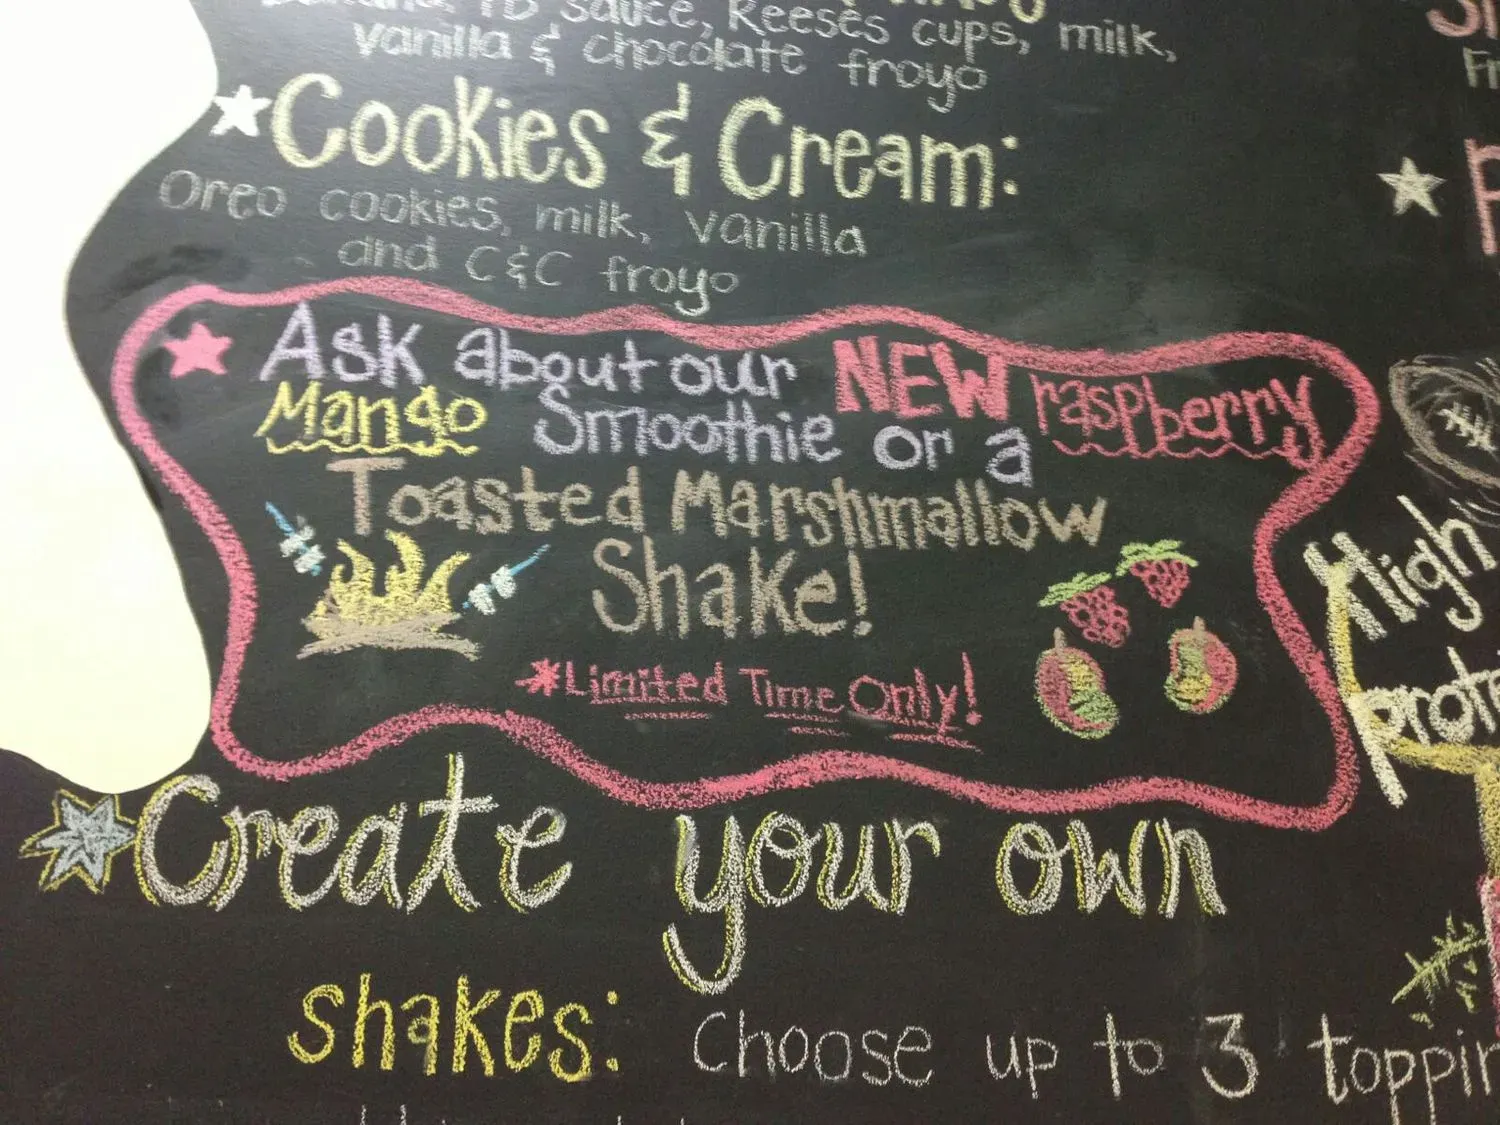 PB sauce, Reeses cups, milk,
vanilla & chocolate froyo
Cookies & Cream:
Oreo cookies, milk, vanilla
and C&C froyo
Ask about our NEW raspberry
Mango Smoothie or a
Toasted Marshmallow
Shake!
*Limited Time Only!
High
Create your own
shakes: Choose up to 3